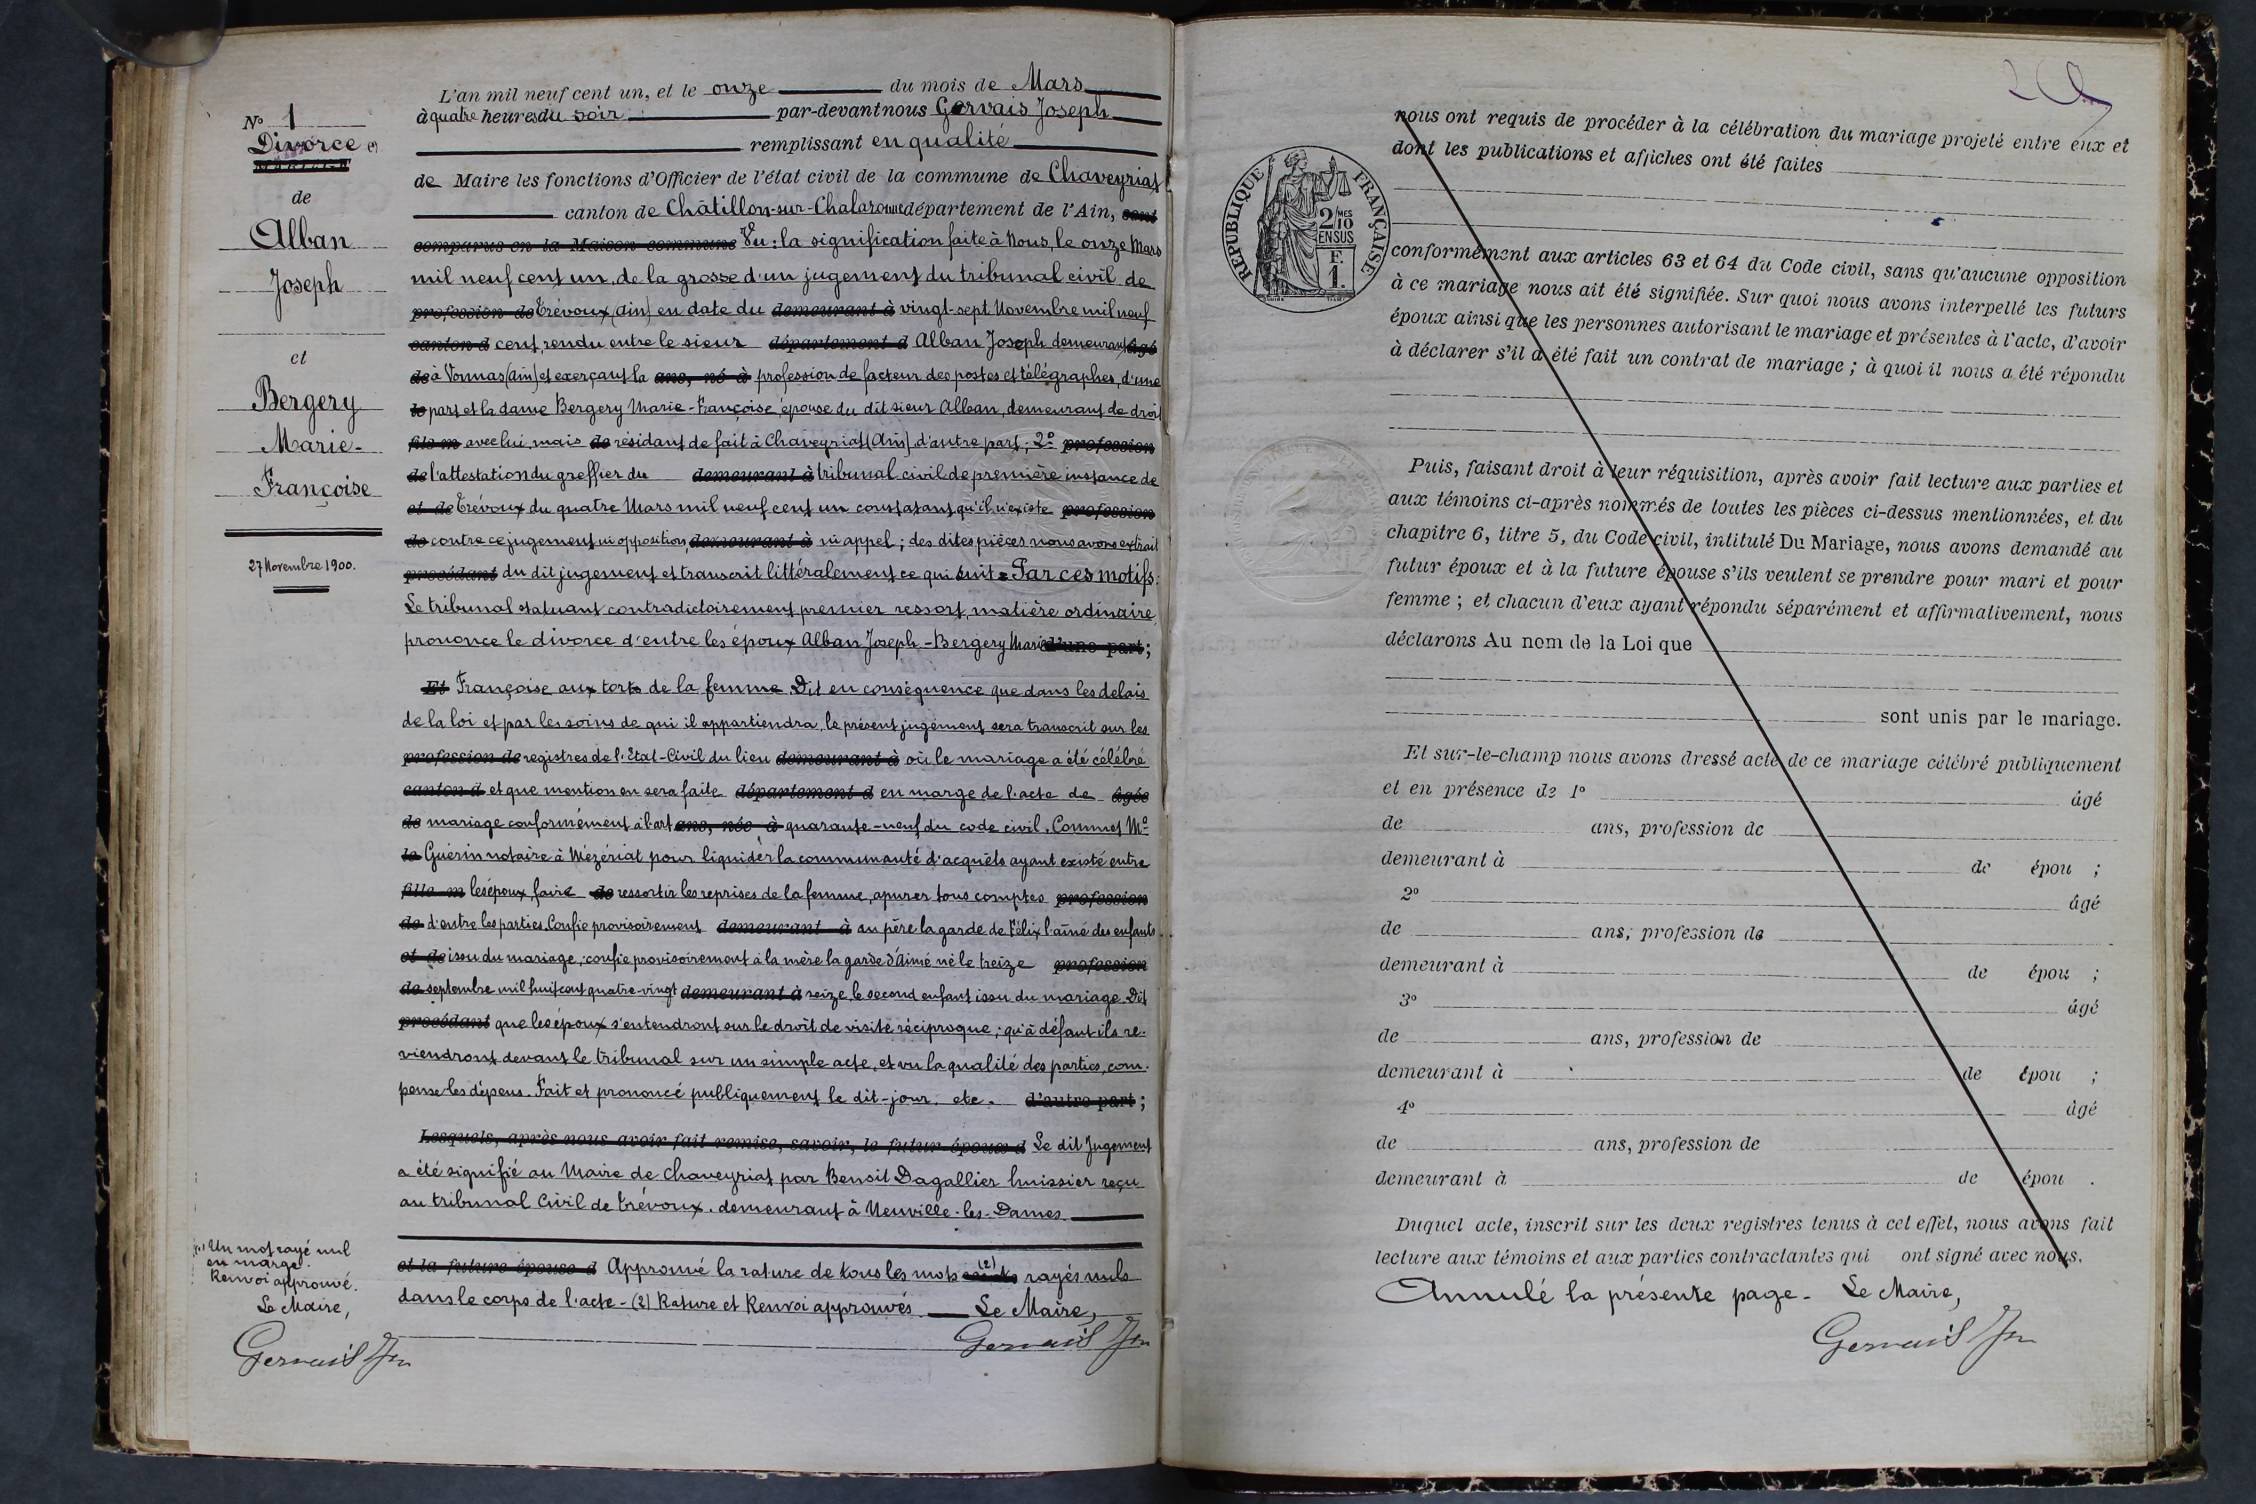 L'an mil neuf cent un, et le onze du mois de Mars
à quatre heures du soir par-devant nous Gervais Joseph
remplissant en qualité
de Maire les fonctions d'Officier de l'état civil de la commune de Chaveyriat
canton de Châtillon-sur-Chalaronne département de l'Ain, sont
comparus en la Maison commune Vu: la signification faite à Nous, le onze Mars
mil neuf cent un, de la grosse d'un jugement du tribunal civil de
profession de Trévoux (Ain) en date du demeurant à vingt-sept Novembre mil neuf
canton d cent, rendu entre le sieur département d Alban Joseph demeurant âgé
de à Vonnas (Ain) et exerçant la ans, né à profession de facteur des postes et télégraphes, d'une
le part et la dame Bergery Marie-Françoise, épouse du dit sieur Alban, demeurant de droit
fils m avec lui, mais de résidant de fait à Chaveyriat (Ain) d'autre part; 2° profession
de l'attestation du greffier du demeurant à tribunal civil de première instance de
et de Trévoux du quatre Mars mil neuf cent un constatant qu'il n'existe profession
de contre ce jugement ni opposition, demeurant à ni appel; des dites pièces nous avons extrait
procédant du dit jugement et transcrit littéralement ce qui suit = Par ces motifs:
Le tribunal statuant contradictoirement, premier ressort, matière ordinaire
prononce le divorce d'entre les époux Alban Joseph - Bergery Marie d'une part;
Et Françoise aux torts de la femme. Dit en conséquence que dans les delais
de la loi et par les soins de qui il appartiendra, le présent jugement sera transcrit sur les
profession de registres de l'Etat-Civil du lieu demeurant à où le mariage a été célébré
canton d et que mention en sera faite département d en marge de l'acte de âgée
de mariage conformément à l'art ans, née à quarante-neuf du code civil. Commet Me
le Guérin notaire à Mézériat pour liquider la communauté d'acquêts ayant existé entre
fille m les époux, faire de ressortir les reprises de la femme, apurer tous comptes profession
de d'entre les parties. Confie provisoirement demeurant à au père la garde de Félix l'aîné des enfants
et de issu du mariage; confie provisoirement à la mère la garde d'Aimé né le treize profession
de septembre mil huit cent quatre-vingt demeurant à seize, le second enfant issu du mariage. Dit
procédant que les époux s'entendront sur le droit de visite réciproque; qu'à défaut ils re-
viendront devant le tribunal sur un simple acte, et vu la qualité des parties, com-
pense les dépens. Fait et prononcé publiquement le dit-jour, etc. d'autre part;
Lesquels, après nous avoir fait remise, savoir, le futur époux d Le dit Jugement
a été signifié au Maire de Chaveyriat par Benoit Dagallier huissier reçu
au tribunal Civil de Trévoux, demeurant à Neuville-les-Dames
et la future épouse d Approuvé la rature de tous les mots (2) rayés nuls
dans le corps de l'acte - (2) Rature et Renvoi approuvés Le Maire,
Gervais Jph
N° 1
Divorce (1)
MARIAGE
de
Alban
Joseph
et
Bergery
Marie-
Françoise
27 Novembre 1900.
(1) Un mot rayé nul
en marge.
Renvoi approuvé.
Le Maire,
Gervais Jph
nous ont requis de procéder à la célébration du mariage projeté entre eux et
dont les publications et affiches ont été faites
RÉPUBLIQUE FRANÇAISE
2/10 MES
EN SUS
F.
1.
conformément aux articles 63 et 64 du Code civil, sans qu'aucune opposition
à ce mariage nous ait été signifiée. Sur quoi nous avons interpellé les futurs
époux ainsi que les personnes autorisant le mariage et présentes à l'acte, d'avoir
à déclarer s'il a été fait un contrat de mariage; à quoi il nous a été répondu
Puis, faisant droit à leur réquisition, après avoir fait lecture aux parties et
aux témoins ci-après nommés de toutes les pièces ci-dessus mentionnées, et du
chapitre 6, titre 5, du Code civil, intitulé Du Mariage, nous avons demandé au
futur époux et à la future épouse s'ils veulent se prendre pour mari et pour
femme; et chacun d'eux ayant répondu séparément et affirmativement, nous
déclarons Au nom de la Loi que
sont unis par le mariage.
Et sur-le-champ nous avons dressé acte de ce mariage célébré publiquement
et en présence de 1° âgé
de ans, profession de
demeurant à de épou ;
2° âgé
de ans, profession de
demeurant à de épou ;
3° âgé
de ans, profession de
demeurant à de épou ;
4° âgé
de ans, profession de
demeurant à de épou .
Duquel acte, inscrit sur les deux registres tenus à cet effet, nous avons fait
lecture aux témoins et aux parties contractantes qui ont signé avec nous.
Annulé la présente page. Le Maire,
Gervais Jph